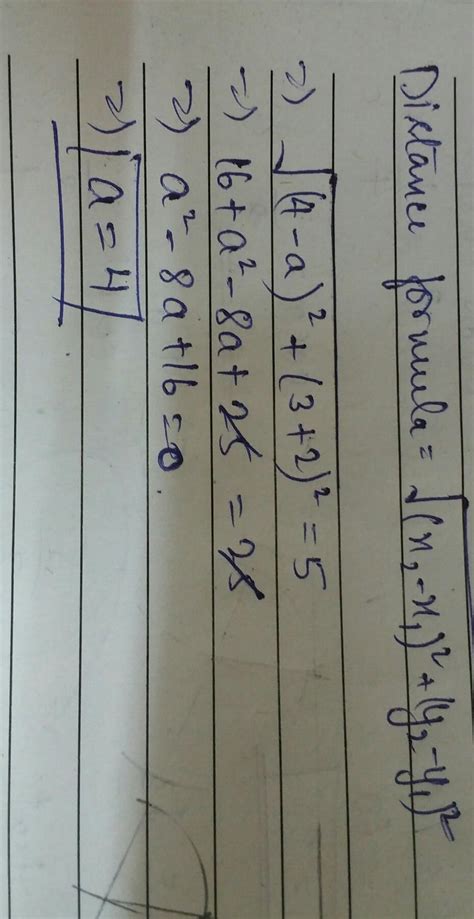 Distance formula = √(x₂-x₁)²+(y₂-y₁)²
=) √(4-a)²+(3+2)² = 5
=) 16+a²-8a+25 = 25
=) a²-8a+16=0
=) a=4